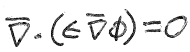 ∇̅·(ϵ∇̅ϕ)=0